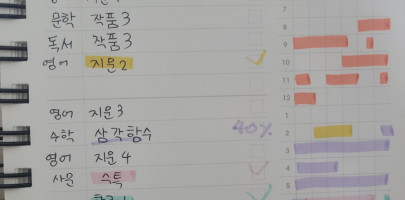 문학 작품 3
독서 작품 3
영어 지문 2
영어 지문 3
수학 삼각함수 40%
영어 지문 4
사문 스톡
7
8
9
10
11
12
1
2
3
4
5